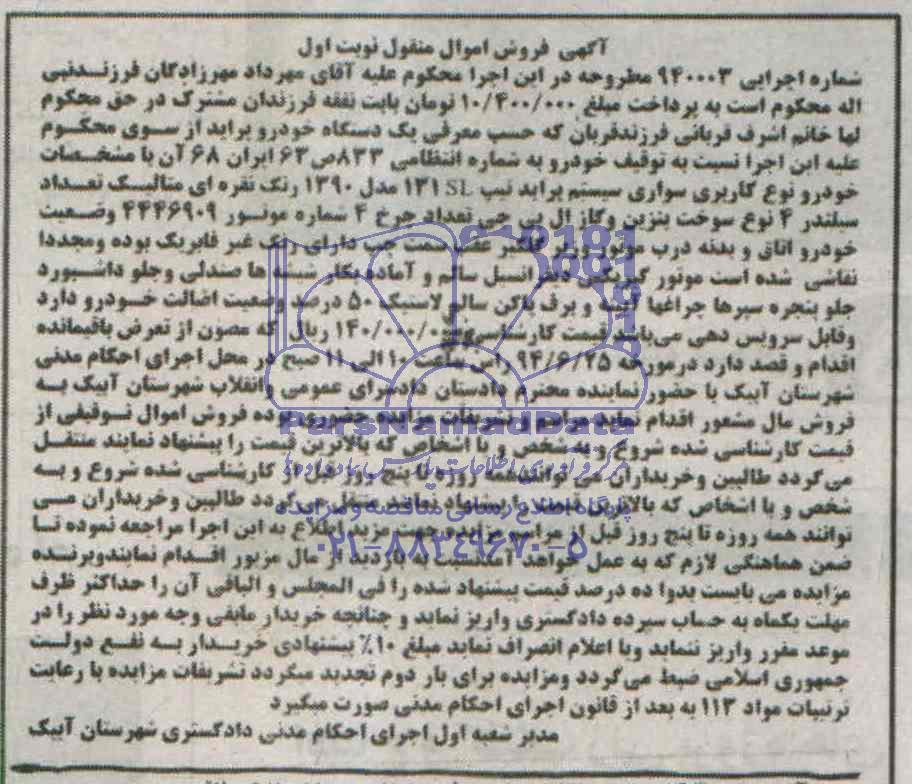 آگهی فروش اموال منقول نوبت اول
شماره اجرایی ۹۴۰۰۰۳ مطروحه در این اجرا محکوم علیه آقای مهرداد مهرزادگان فرزندنبی
اله محکوم است به پرداخت مبلغ ۱۰/۴۰۰/۰۰۰ تومان بابت نفقه فرزندان مشترک در حق محکوم
لها خانم اشرف قربانی فرزندقربان که حسب معرفی یک دستگاه خودرو پراید از سوی محکوم
علیه این اجرا نسبت به توقیف خودرو به شماره انتظامی ۸۳۳ص۶۳ ایران ۶۸ آن با مشخصات
خودرو نوع کاربری سواری سیستم پراید تیپ SL ۱۳۱ مدل ۱۳۹۰ رنگ نقره ای متالیک تعداد
سیلندر ۴ نوع سوخت بنزین وگاز ال پی جی تعداد چرخ ۴ شماره موتور ۴۴۴۶۹۰۹ وضعیت
خودرو اتاق و بدنه درب موتور وزیر گلگیر عقب سمت چپ دارای رنگ غیر فابریک بوده ومجددا
نقاشی شده است موتور گیربکس دیفرانسیل سالم و آماده بکار شیشه ها صندلی وجلو داشبورد
جلو پنجره سپرها چراغها آیینه و برف پاکن سالم لاستیک ۵۰ درصد وضعیت اصالت خودرو دارد
وقابل سرویس دهی می‌باشد قیمت کارشناسی ۱۴۰/۰۰۰/۰۰۰ ریال که مصون از تعرض باقیمانده
اقدام و قصد دارد درمورخه ۹۴/۶/۲۵ راس ساعت ۱۰ الی ۱۱ صبح در محل اجرای احکام مدنی
شهرستان آبیک با حضور نماینده محترم دادستان دادسرای عمومی وانقلاب شهرستان آبیک به
فروش مال مشعور اقدام نماید مراسم و تشریفات مزایده حضوری بوده فروش اموال توقیفی از
قیمت کارشناسی شده شروع و به شخص و یا اشخاص که بالاترین قیمت را پیشنهاد نمایند منتقل
می گردد طالبین وخریداران می توانند همه روزه تا پنج روز قبل از کارشناسی شده شروع و به
شخص و یا اشخاص که بالاترین قیمت را پیشنهاد نمایند منتقل می گردد طالبین وخریداران می
توانند همه روزه تا پنج روز قبل از مراسم مزایده جهت مزید اطلاع به این اجرا مراجعه نموده تا
ضمن هماهنگی لازم که به عمل خواهد آمد نسبت به بازدید از مال مزبور اقدام نمایندوبرنده
مزایده می بایست بدوا ده درصد قیمت پیشنهاد شده را فی المجلس و الباقی آن را حداکثر ظرف
مهلت یکماه به حساب سپرده دادگستری واریز نماید و چنانچه خریدار مابقی وجه مورد نظر را در
موعد مقرر واریز ننماید ویا اعلام انصراف نماید مبلغ ۱۰٪ پیشنهادی خریدار به نفع دولت
جمهوری اسلامی ضبط می گردد ومزایده برای بار دوم تجدید میگردد تشریفات مزایده با رعایت
ترتیبات مواد ۱۱۳ به بعد از قانون اجرای احکام مدنی صورت میگیرد
مدیر شعبه اول اجرای احکام مدنی دادگستری شهرستان آبیک
ParsNamadData
پایگاه اطلاع رسانی مناقصه و مزایده
۰۲۱-۸۸۳۴۹۶۷۰-۵